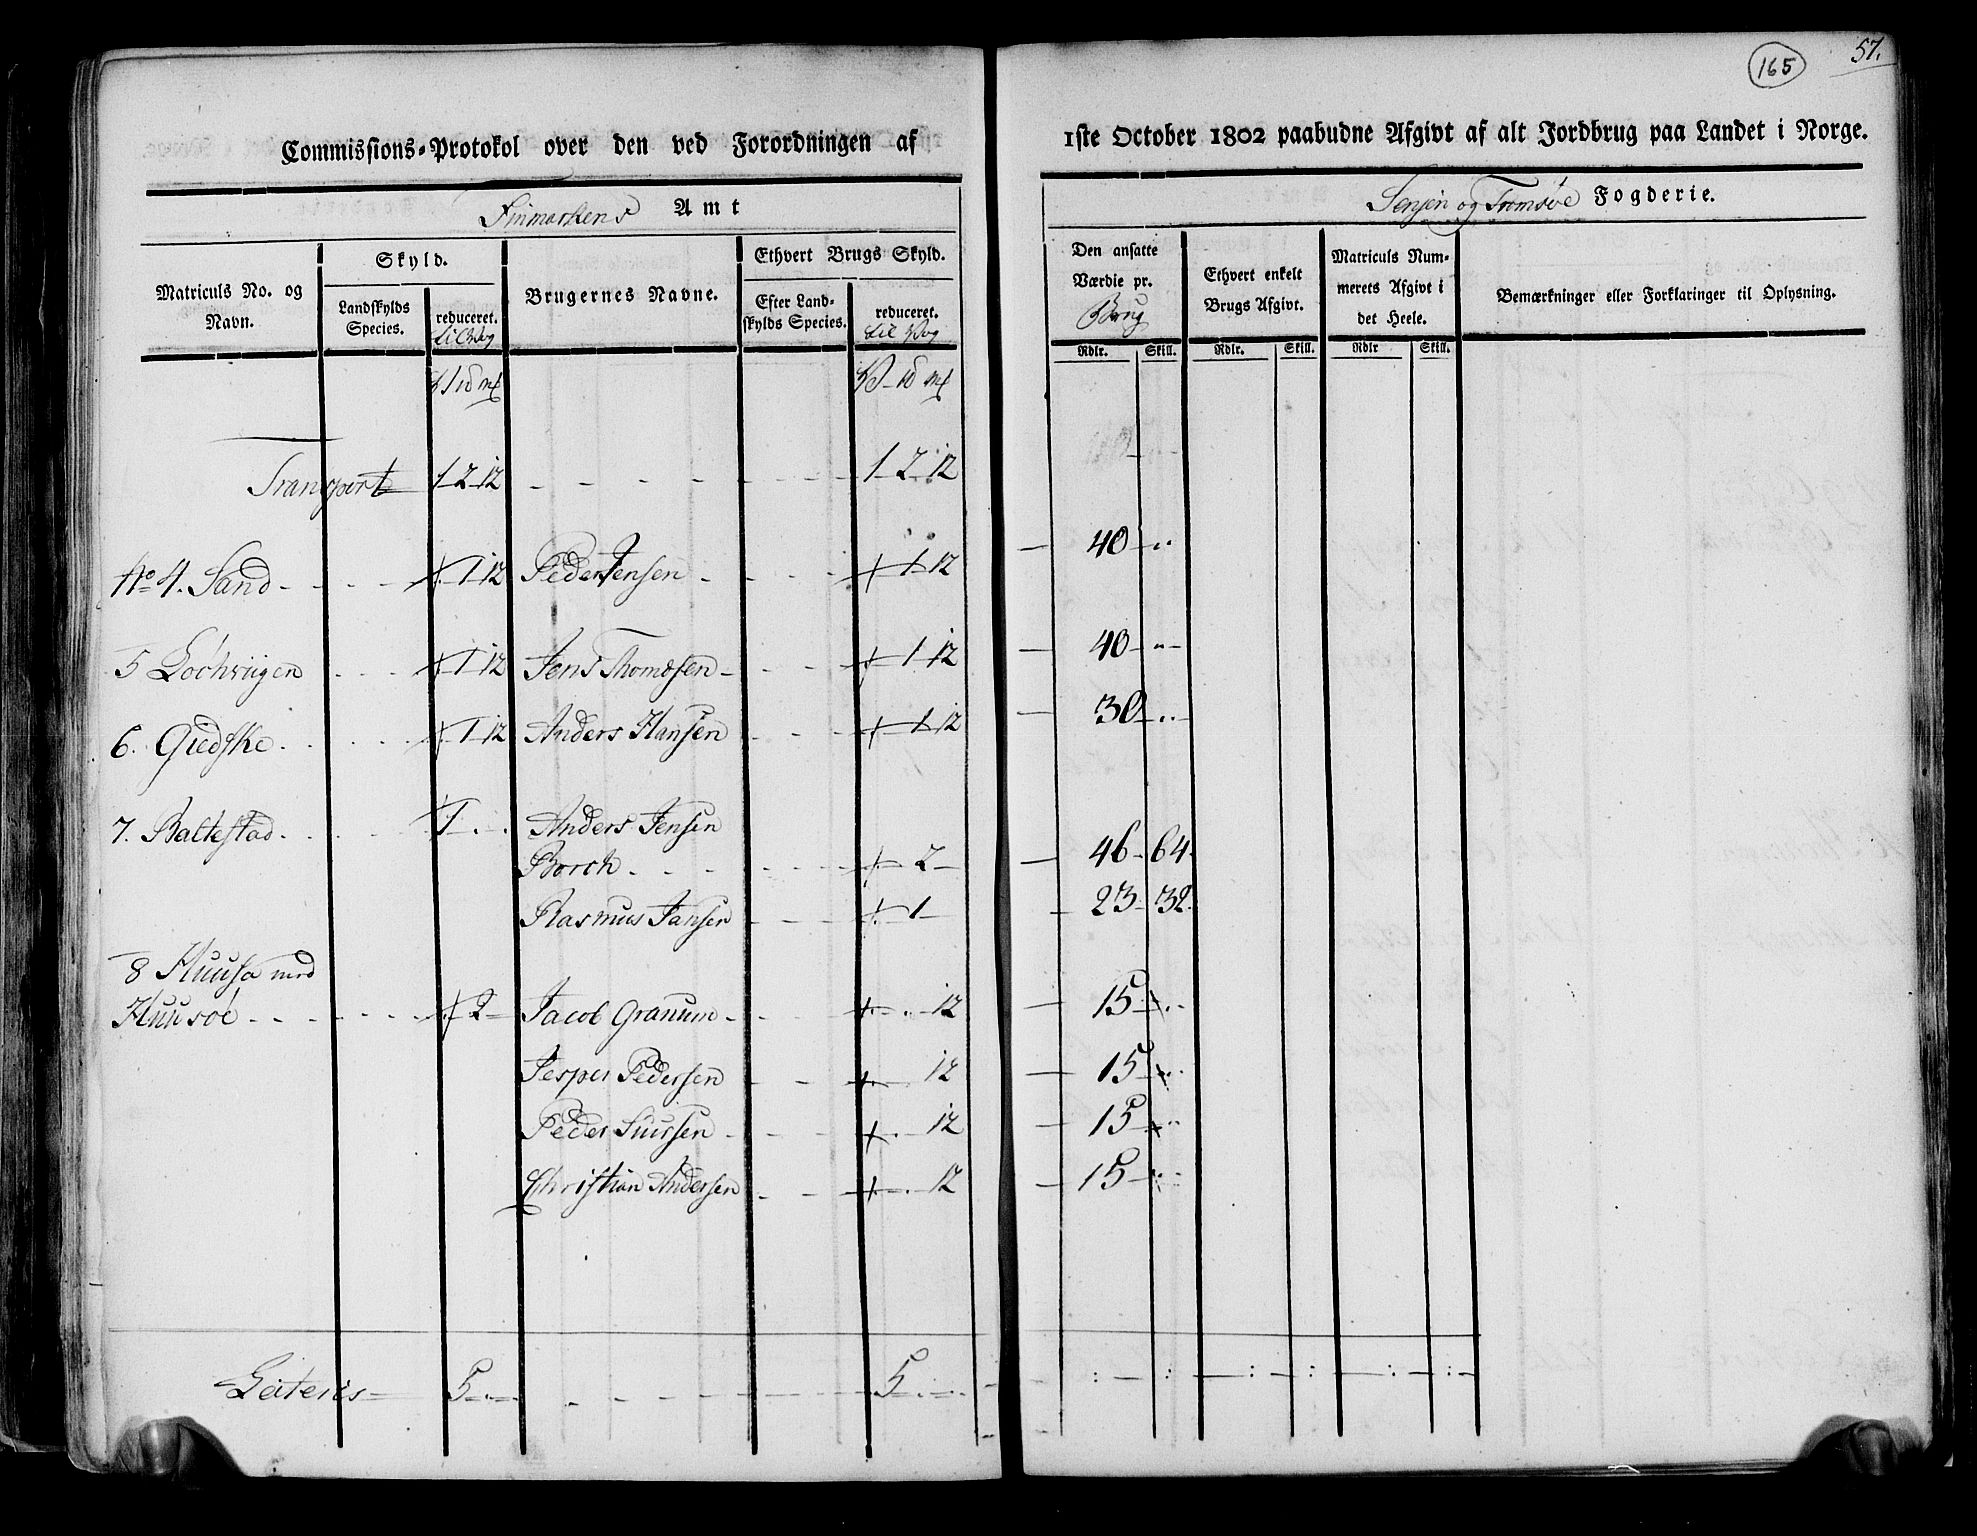 165
57.
Commissions-Protokol over den ved Forordningen af
1ste October 1802 paabudne Afgivt af alt Jordbrug paa Landet i Norge.
Finmarkens Amt
Senjen og Tromsøe Fogderie.
Matriculs No. og Navn.
Skyld.
Landskylds Species.
reduceret.
til Vog
Brugernes Navne.
Ethvert Brugs Skyld.
Efter Landskylds Species.
reduceret.
til Vog
Den ansatte Værdie pr.
Brug
Ethvert enkelt Brugs Afgivt.
Matriculs Nummerets Afgivt i det Heele.
Bemærkninger eller Forklaringer til Oplysning.
Rdlr. Skill. Rdlr. Skill. Rdlr Skill.
Transport 1 2 12 - - - - - 1 2 12
No 4. Sand - - - 1 12 Peder Jensen - - - 1 12 40 -
5 - - - 1 12 Jens Thomesen - - - 1 12 40 -
6. Giedske - - - 1 12 Anders Hansen - - - 1 12 30 -
7. Baltestad - - - 1 - - Anders Jensen
Borch - - - 2 - 46 64
Rasmus Jansen - - - 1 - 23 32
8 Huusø med
Huusøe - - - 2 - Jacob Granum - - - 12 15 -
Jesper Pedersen - - - 12 15 -
Peder - - - 12 15 -
Christian Andersen - - - 12 15 -
Lateris 5 - - - - - - 5 - -